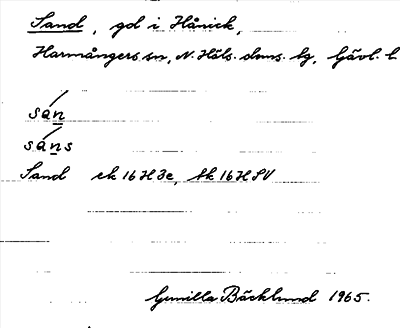 Sand, gd i Hånick,
Harmångers sn, N. Häls. doms. tg, Gävl. l
sán
sáns
Sand ek 16H3e, tk 16HSV
Gunilla Bäcklund 1965.